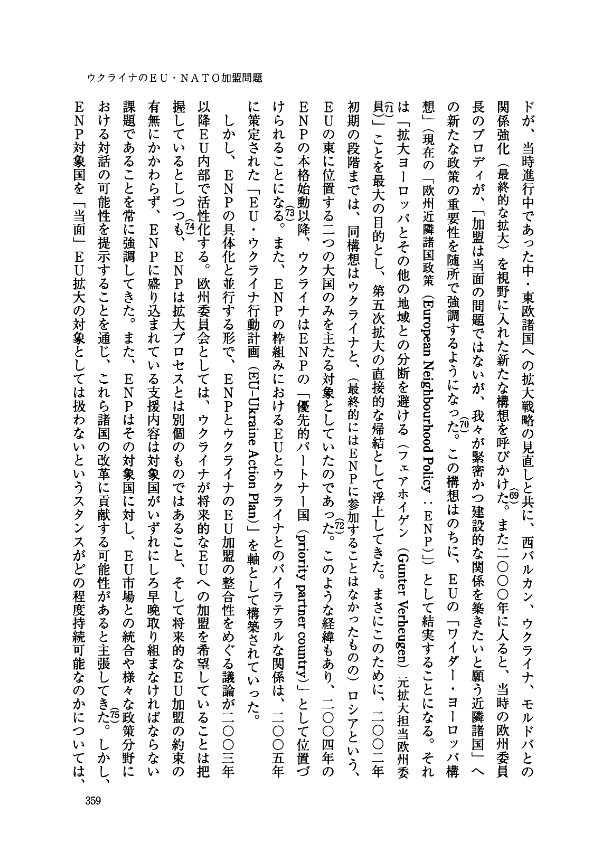 ウクライナのEU・NATO加盟問題
ドが、当時進行中であった中・東欧諸国への拡大戦略の見直しと共に、西バルカン、ウクライナ、モルドバとの
関係強化（最終的な拡大）を視野に入れた新たな構想を呼びかけた。(69)また二〇〇〇年に入ると、当時の欧州委員
長のプロディが、「加盟は当面の問題ではないが、我々が緊密かつ建設的な関係を築きたいと願う近隣諸国」へ
の新たな政策の重要性を随所で強調するようになった。(70)この構想はのちに、EUの「ワイダー・ヨーロッパ構
想」（現在の「欧州近隣諸国政策（European Neighbourhood Policy：ENP）」）として結実することになる。それ
は「拡大ヨーロッパとその他の地域との分断を避ける（フェアホイゲン（Gunter Verheugen）元拡大担当欧州委
員）(71)」ことを最大の目的とし、第五次拡大の直接的な帰結として浮上してきた。まさにこのために、二〇〇二年
初期の段階までは、同構想はウクライナと、（最終的にはENPに参加することはなかったものの）ロシアという、
EUの東に位置する二つの大国のみを主たる対象としていたのであった。(72)このような経緯もあり、二〇〇四年の
ENPの本格始動以降、ウクライナはENPの「優先的パートナー国（priority partner country）」として位置づ
けられることになる。(73)また、ENPの枠組みにおけるEUとウクライナとのバイラテラルな関係は、二〇〇五年
に策定された「EU・ウクライナ行動計画（EU-Ukraine Action Plan）」を軸として構築されていった。
しかし、ENPの具体化と並行する形で、ENPとウクライナのEU加盟の整合性をめぐる議論が二〇〇三年
以降EU内部で活性化する。欧州委員会としては、ウクライナが将来的なEUへの加盟を希望していることは把
握しているとしつつも、(74)ENPは拡大プロセスとは別個のものではあること、そして将来的なEU加盟の約束の
有無にかかわらず、ENPに盛り込まれている支援内容は対象国がいずれにしろ早晩取り組まなければならない
課題であることを常に強調してきた。また、ENPはその対象国に対し、EU市場との統合や様々な政策分野に
おける対話の可能性を提示することを通じ、これら諸国の改革に貢献する可能性があると主張してきた。(75)しかし、
ENP対象国を「当面」EU拡大の対象としては扱わないというスタンスがどの程度持続可能なのかについては、
359